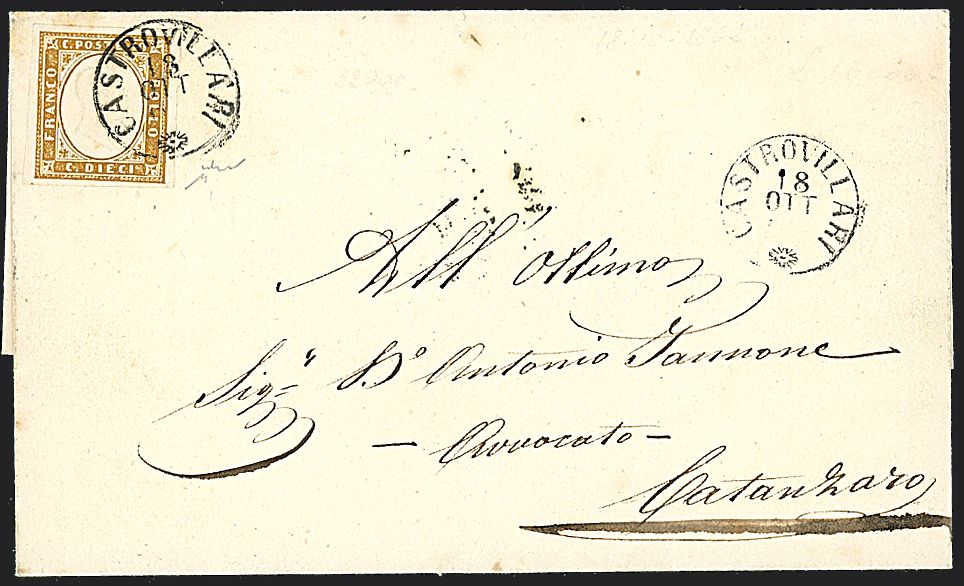 C. POST
FRANCO
BOLLO
C. DIECI
CASTROVILLARI
18
OTT
CASTROVILLARI
18
OTT
All' ottimo
Sig.r Dn Antonio Iannone
— Avvocato —
Catanzaro